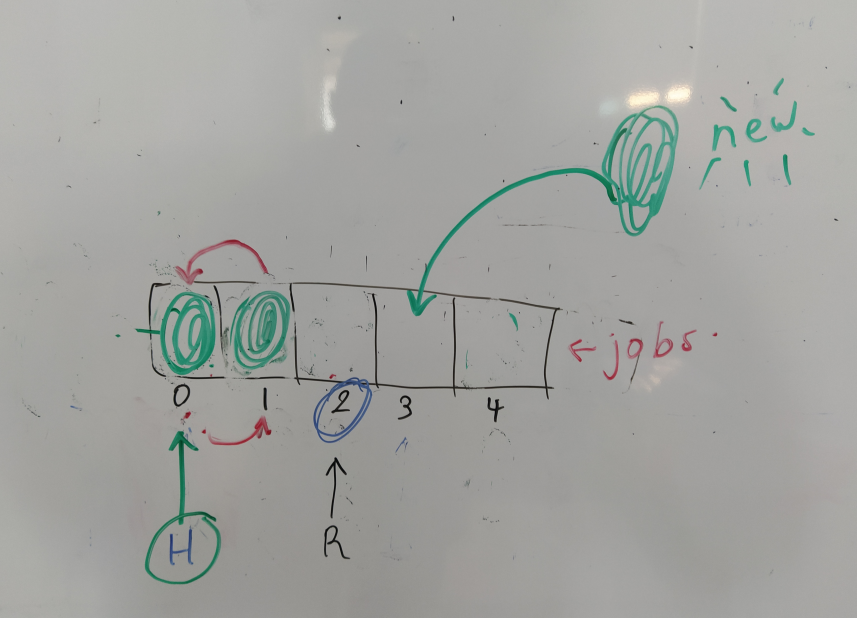 new
← jobs.
0 1 2 3 4
H
R